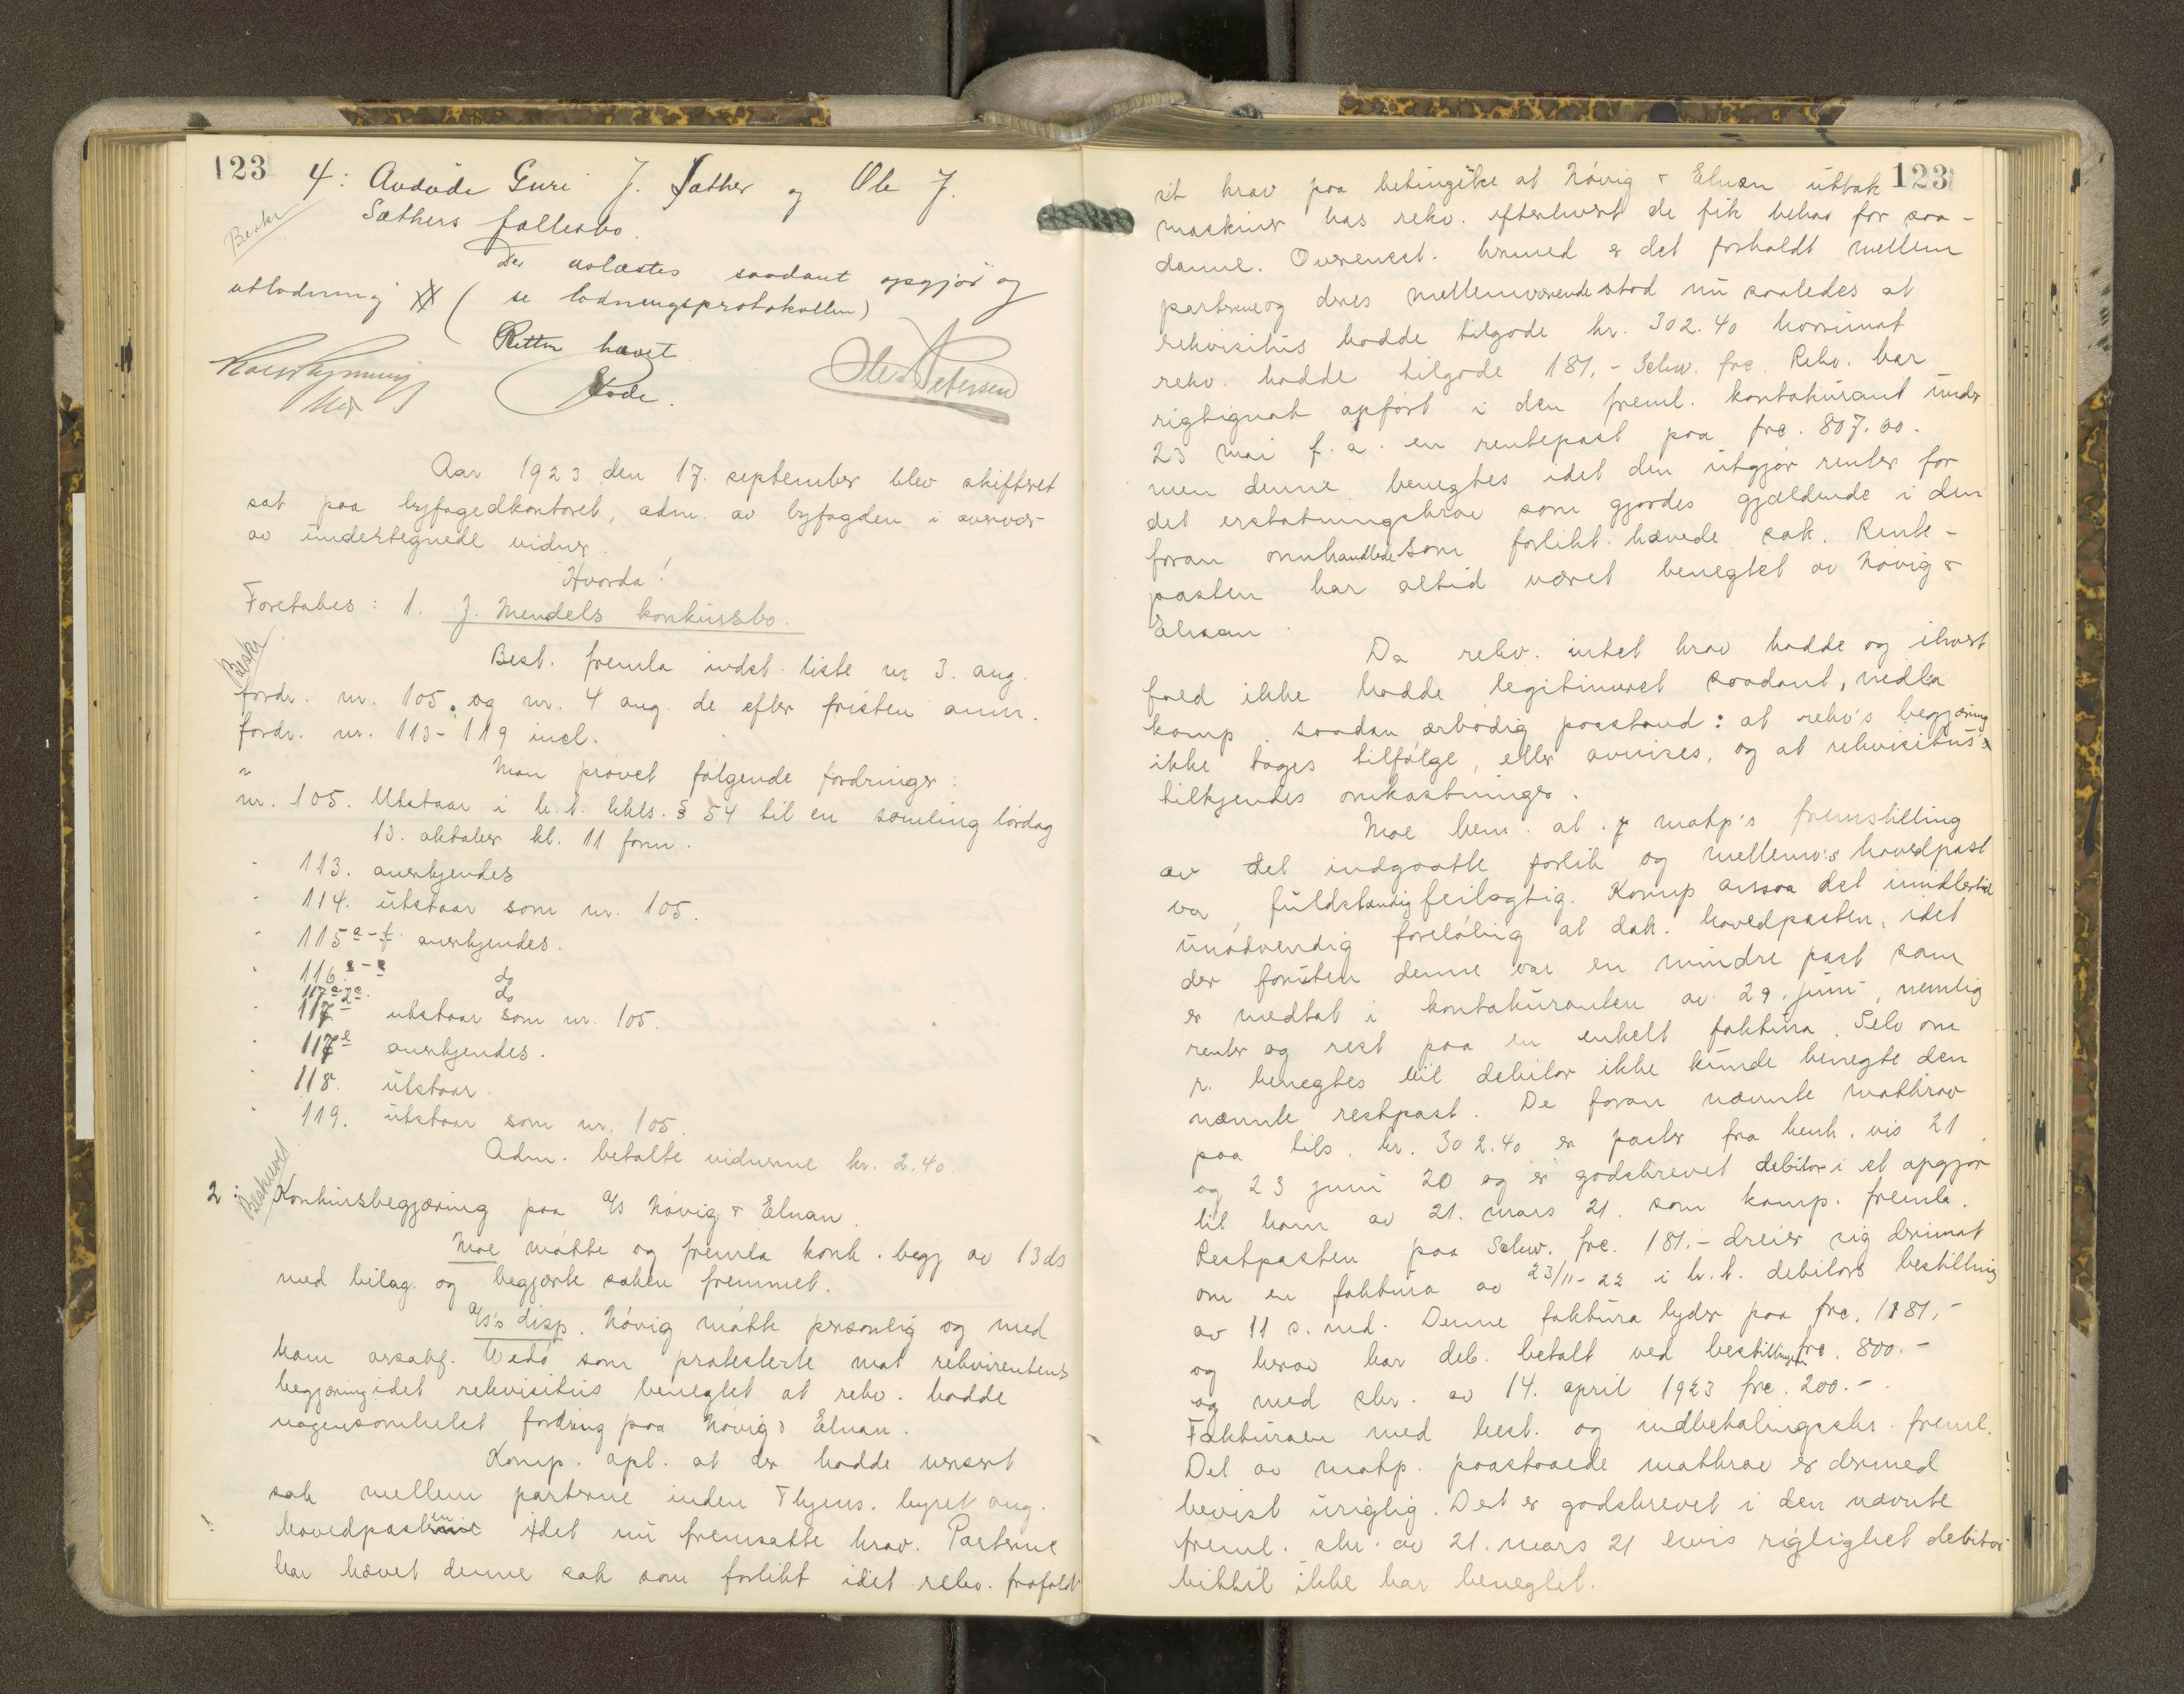 123
4: Avdøde Guri J. Sæther og Ole J.
Beskr
Sæthers fællesbo.
Der avlæstes saadant opgjør og
utlodning (se lodningsprotokollen)
Retten hævet
Ole Petersen
Aar 1923 den 17. september blev skifteret
sat paa byfogedkontoret, adm. av byfogden i overvær
av undertegnede vidner.
Hvorda!
Foretages: 1. J. Mendels konkursbo.
Beskr
Best. fremla indst. liste nr 3. ang.
fordr. nr. 105. og nr. 4 ang. de efter fristen anm.
fordr. nr. 113-119 incl.
Man prøvet følgende fordringer:
nr. 105. Utstaar i h.t. kkls. § 54 til en samling lørdag
13. oktober kl. 11 form.
" 113. anerkjendes
" 114. utstaar som nr. 105.
" 115 a-f anerkjendes.
" 116 do
117 do
" 117 utstaar som nr. 105.
" 117 e anerkjendes.
" 118. utstaar.
" 119. utstaar som nr. 105.
Adm. betalte vidnerne kr. 2.40.
Beskrevet
2: Konkursbegjæring paa A/S Növig & Elnan.
Moe møtte og fremla konk. begj av 13 ds
med bilag. og begjærte saken fremmet.
A/S's disp. Növig møtte personlig og med
ham orsakf. Wedø som protesterte mot rekvirentens
begjæring idet rekvisitus benegtet at rekv. hadde
nogensomhelst fordring paa Növig & Elnan.
Komp. opl. at der hadde versert
sak mellem parterne inden Thjems. byret ang.
hovedposten idet nu fremsatte krav. Parterne
har hævet denne sak som forlikt idet rekv. frafaldt
123
sit krav paa betingelse at Növig & Elnan uttok
maskiner hos rekv. efterhvert de fik behov for saa-
danne. Overenst. hermed er det forholdt mellem
parterne og deres mellemværende stod nu saaledes at
rekvisitus hadde tilgode kr. 302.40 hvorimot
rekv. hadde tilgode 181.- Schw. frc. Rekv. har
rigtignok opført i den freml. kontokurant under
23 mai f. a. en rentepost paa frc. 807.00.
men denne benegtes idet den utgjør renter for
det erstatningskrav som gjordes gjældende i den
foran omhandlede som forlikt hævede sak. Rente-
posten har altid været benegtet av Növig &
Elnan.
Da rekv. intet krav hadde og ihvert
fald ikke hadde legitimert saadant, nedla
komp. saadan ærbødig paastand: at rekv's begjæring
ikke tages tilfølge, eller avvises, og at rekvisitus
tilkjendes omkostninger.
Moe bem. at motp's fremstilling
av det indgaatte forlik og mellemv's hovedpost
var fuldstændig feilagtig. Komp ansaa det imidlertid
unødvendig foreløbig at dok. hovedposten, idet
der foruten denne var en mindre post som
er medtat i kontokuranten av 29. juni, nemlig
renter og rest paa en enkelt faktura. Selv om
r. benegtes vil debitor ikke kunde benegte den
nævnte restpost. De foran nævnte motkrav
paa tils. kr. 302.40 er poster fra henh. vis 21
og 23 juni 20 og er godskrevet debitor i et opgjør
til ham av 21. mars 21. som komp. fremla.
Restposten paa Schw. frc. 181.- dreier sig derimot
om en faktura av 23/11-22 i h.t. debitors bestilling
av 11 s. md. Denne faktura lyder paa frc. 1181,-
og herav har deb. betalt ved bestillingen frc. 800.-
og med skr. av 14. april 1923 frc. 200.-
Fakturaen med best. og indbetalingsskr. freml.
Det av motp. paastaaede motkrav er dermed
bevist urigtig. Det er godskrevet i den nævnte
freml. skr. av 21. mars 21 hvis rigtighet debitor
hittil ikke har benegtet.